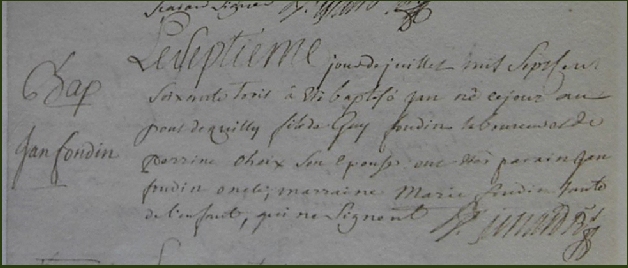 Bap
Jan foudin
Le Septieme jour de juillet mil Sept cent
Soixante trois à Eté baptisé Jan né ce jour au
pont de quilly fils de Guy foudin laboureur et de
perrine choix Son Epouse ont Eté parain Jan
foudin oncle, marraine Marie foudin tante
de l'enfant, qui ne Signent